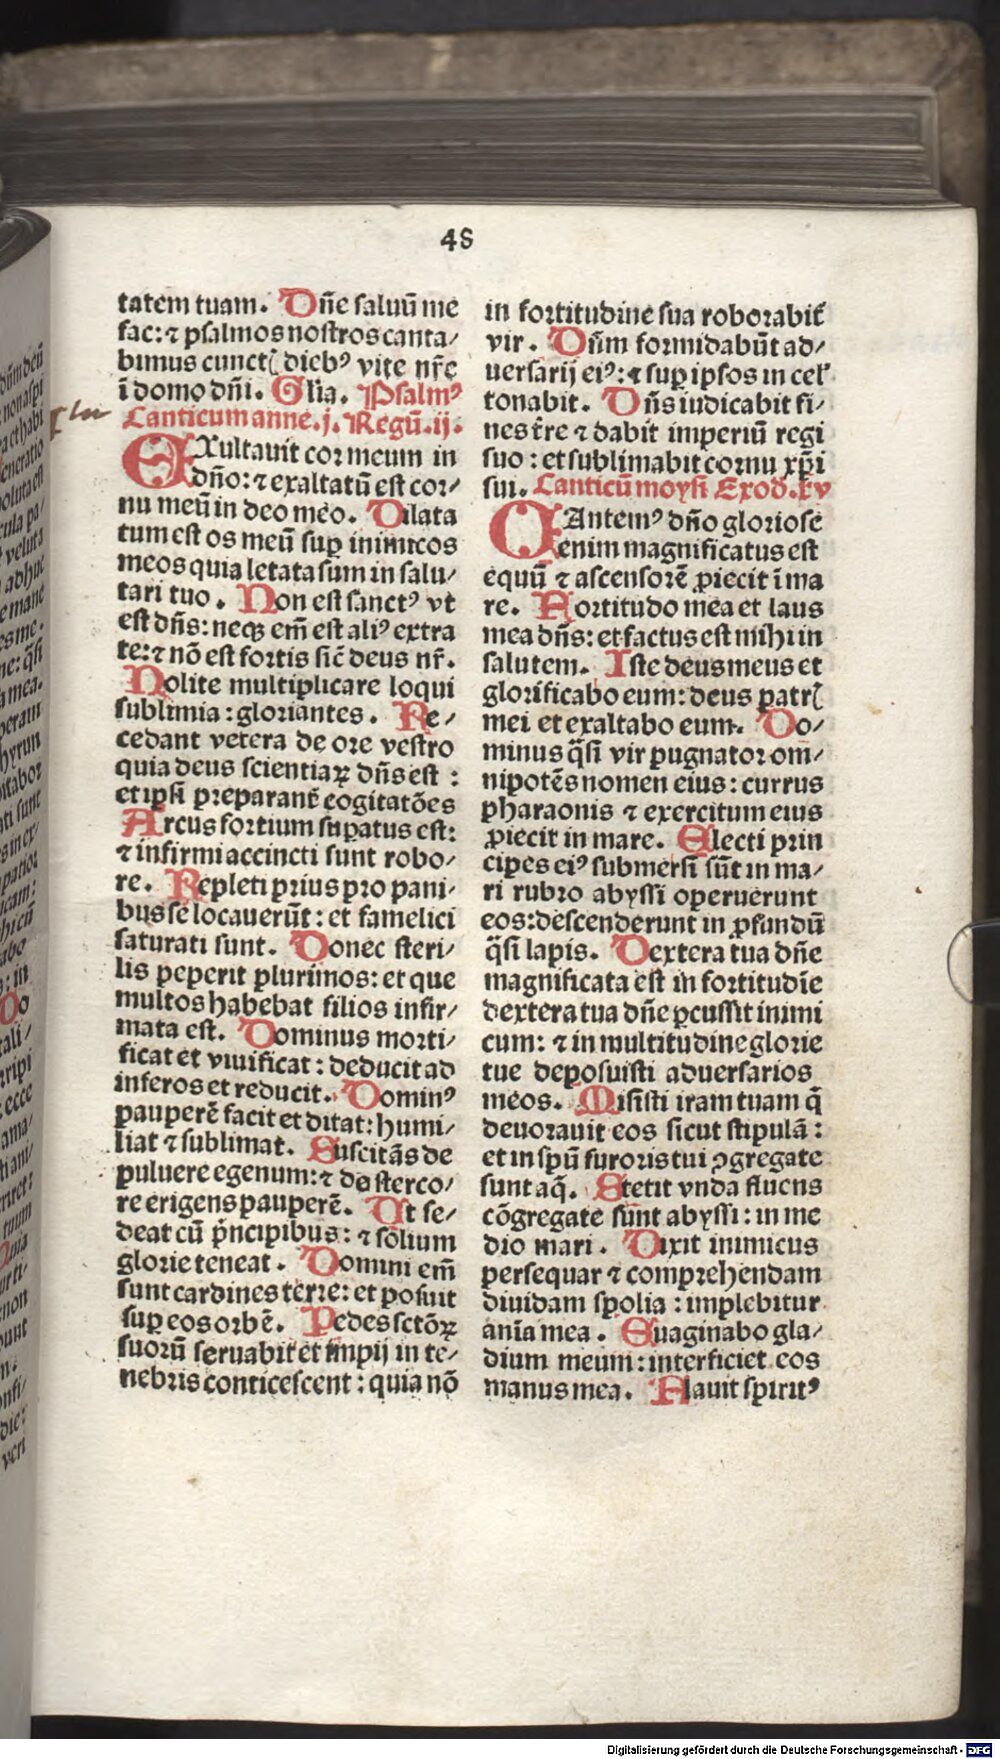 48
tatem tuam. Dñe saluū me
fac: ⁊ psalmos nostros canta⸗
bimus cunctꝭ diebꝰ vite nr̄e
ī domo dñi. Glīa. Psalmꝰ
Canticum anne. j. Regū. ij.
EXultauit cor meum in
dño: ⁊ exaltatū est cor⸗
nu meū in deo meo. Dilata
tum est os meū suꝑ inimicos
meos quia letata sum in salu⸗
tari tuo. Non est sanctꝰ vt
est dñs: neqꝫ em̄ est aliꝰ extra
te: ⁊ nō est fortis sic̄ deus nr̄.
Nolite multiplicare loqui
sublimia: gloriantes. Re⸗
cedant vetera de ore vestro
quia deus scientiaꝝ dñs est:
et ipsi preparant̄ cogitatōes
Arcus fortium suꝑatus est:
⁊ infirmi accincti sunt robo⸗
re. Repleti prius pro pani⸗
bus se locauerūt: et famelici
saturati sunt. Donec steri⸗
lis peperit plurimos: et que
multos habebat filios infir⸗
mata est. Dominus morti⸗
ficat et viuificat: deducit ad
inferos et reducit. Dominꝰ
pauperē facit et ditat: humi⸗
liat ⁊ sublimat. Suscitās de
puluere egenum: ⁊ de sterco⸗
re erigens pauperē. Ut se⸗
deat cū pͥncipibus: ⁊ solium
glorie teneat. Domini em̄
sunt cardines terre: et posuit
suꝑ eos orbē. Pedes sctōꝝ
suorū seruabit et impij in te⸗
nebris conticescent: quia nō
in fortitudine sua roborabit̄
vir. Dn̄m formidabūt ad⸗
uersarij eiꝰ: ⁊ suꝑ ipsos in cel̄
tonabit. Dñs iudicabit fi⸗
nes tr̄e ⁊ dabit imperiū regi
suo: et sublimabit cornu xp̄i
sui. Canticū moysi Exod. xv
CAntemꝰ dño gloriose
enim magnificatus est
equū ⁊ ascensorē ꝓiecit ī ma
re. Fortitudo mea et laus
mea dñs: et factus est mihi in
salutem. Iste deus meus et
glorificabo eum: deus patrꝭ
mei et exaltabo eum. Do⸗
minus q̄si vir pugnator om̄⸗
nipotēs nomen eius: currus
pharaonis ⁊ exercitum eius
ꝓiecit in mare. Electi prin
cipes eiꝰ submersi sūt in ma⸗
ri rubro abyssi operuerunt
eos: descenderunt in ꝓfundū
q̄si lapis. Dextera tua dñe
magnificata est in fortitudīe
dextera tua dñe ꝑcussit inimi
cum: ⁊ in multitudine glorie
tue deposuisti aduersarios
meos. Misisti iram tuam q̄
deuorauit eos sicut stipulā:
et in spū furoris tui ꝯgregate
sunt aq̄. Stetit vnda fluens
cōgregate sunt abyssi: in me
dio mari. Dixit inimicus
persequar ⁊ comprehendam
diuidam spolia: implebitur
anīa mea. Euaginabo gla⸗
dium meum: interficiet eos
manus mea. Flauit spiritꝰ
Digitalisierung gefördert durch die Deutsche Forschungsgemeinschaft - DFG